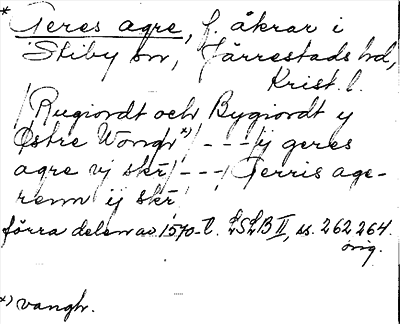 * Geres agre, f. åkrar i
Stiby sn, Järrestads hd,
Krist. l.
/Rugiordt och Bygiordt y
Östre Wongh*)/ - - - /ij geres
agre vj skr/ - - -, Gerris age-
renn ij skr/
förra delen av 1570-t. LSLB II, ss. 262 264.
orig.
*) vangh.